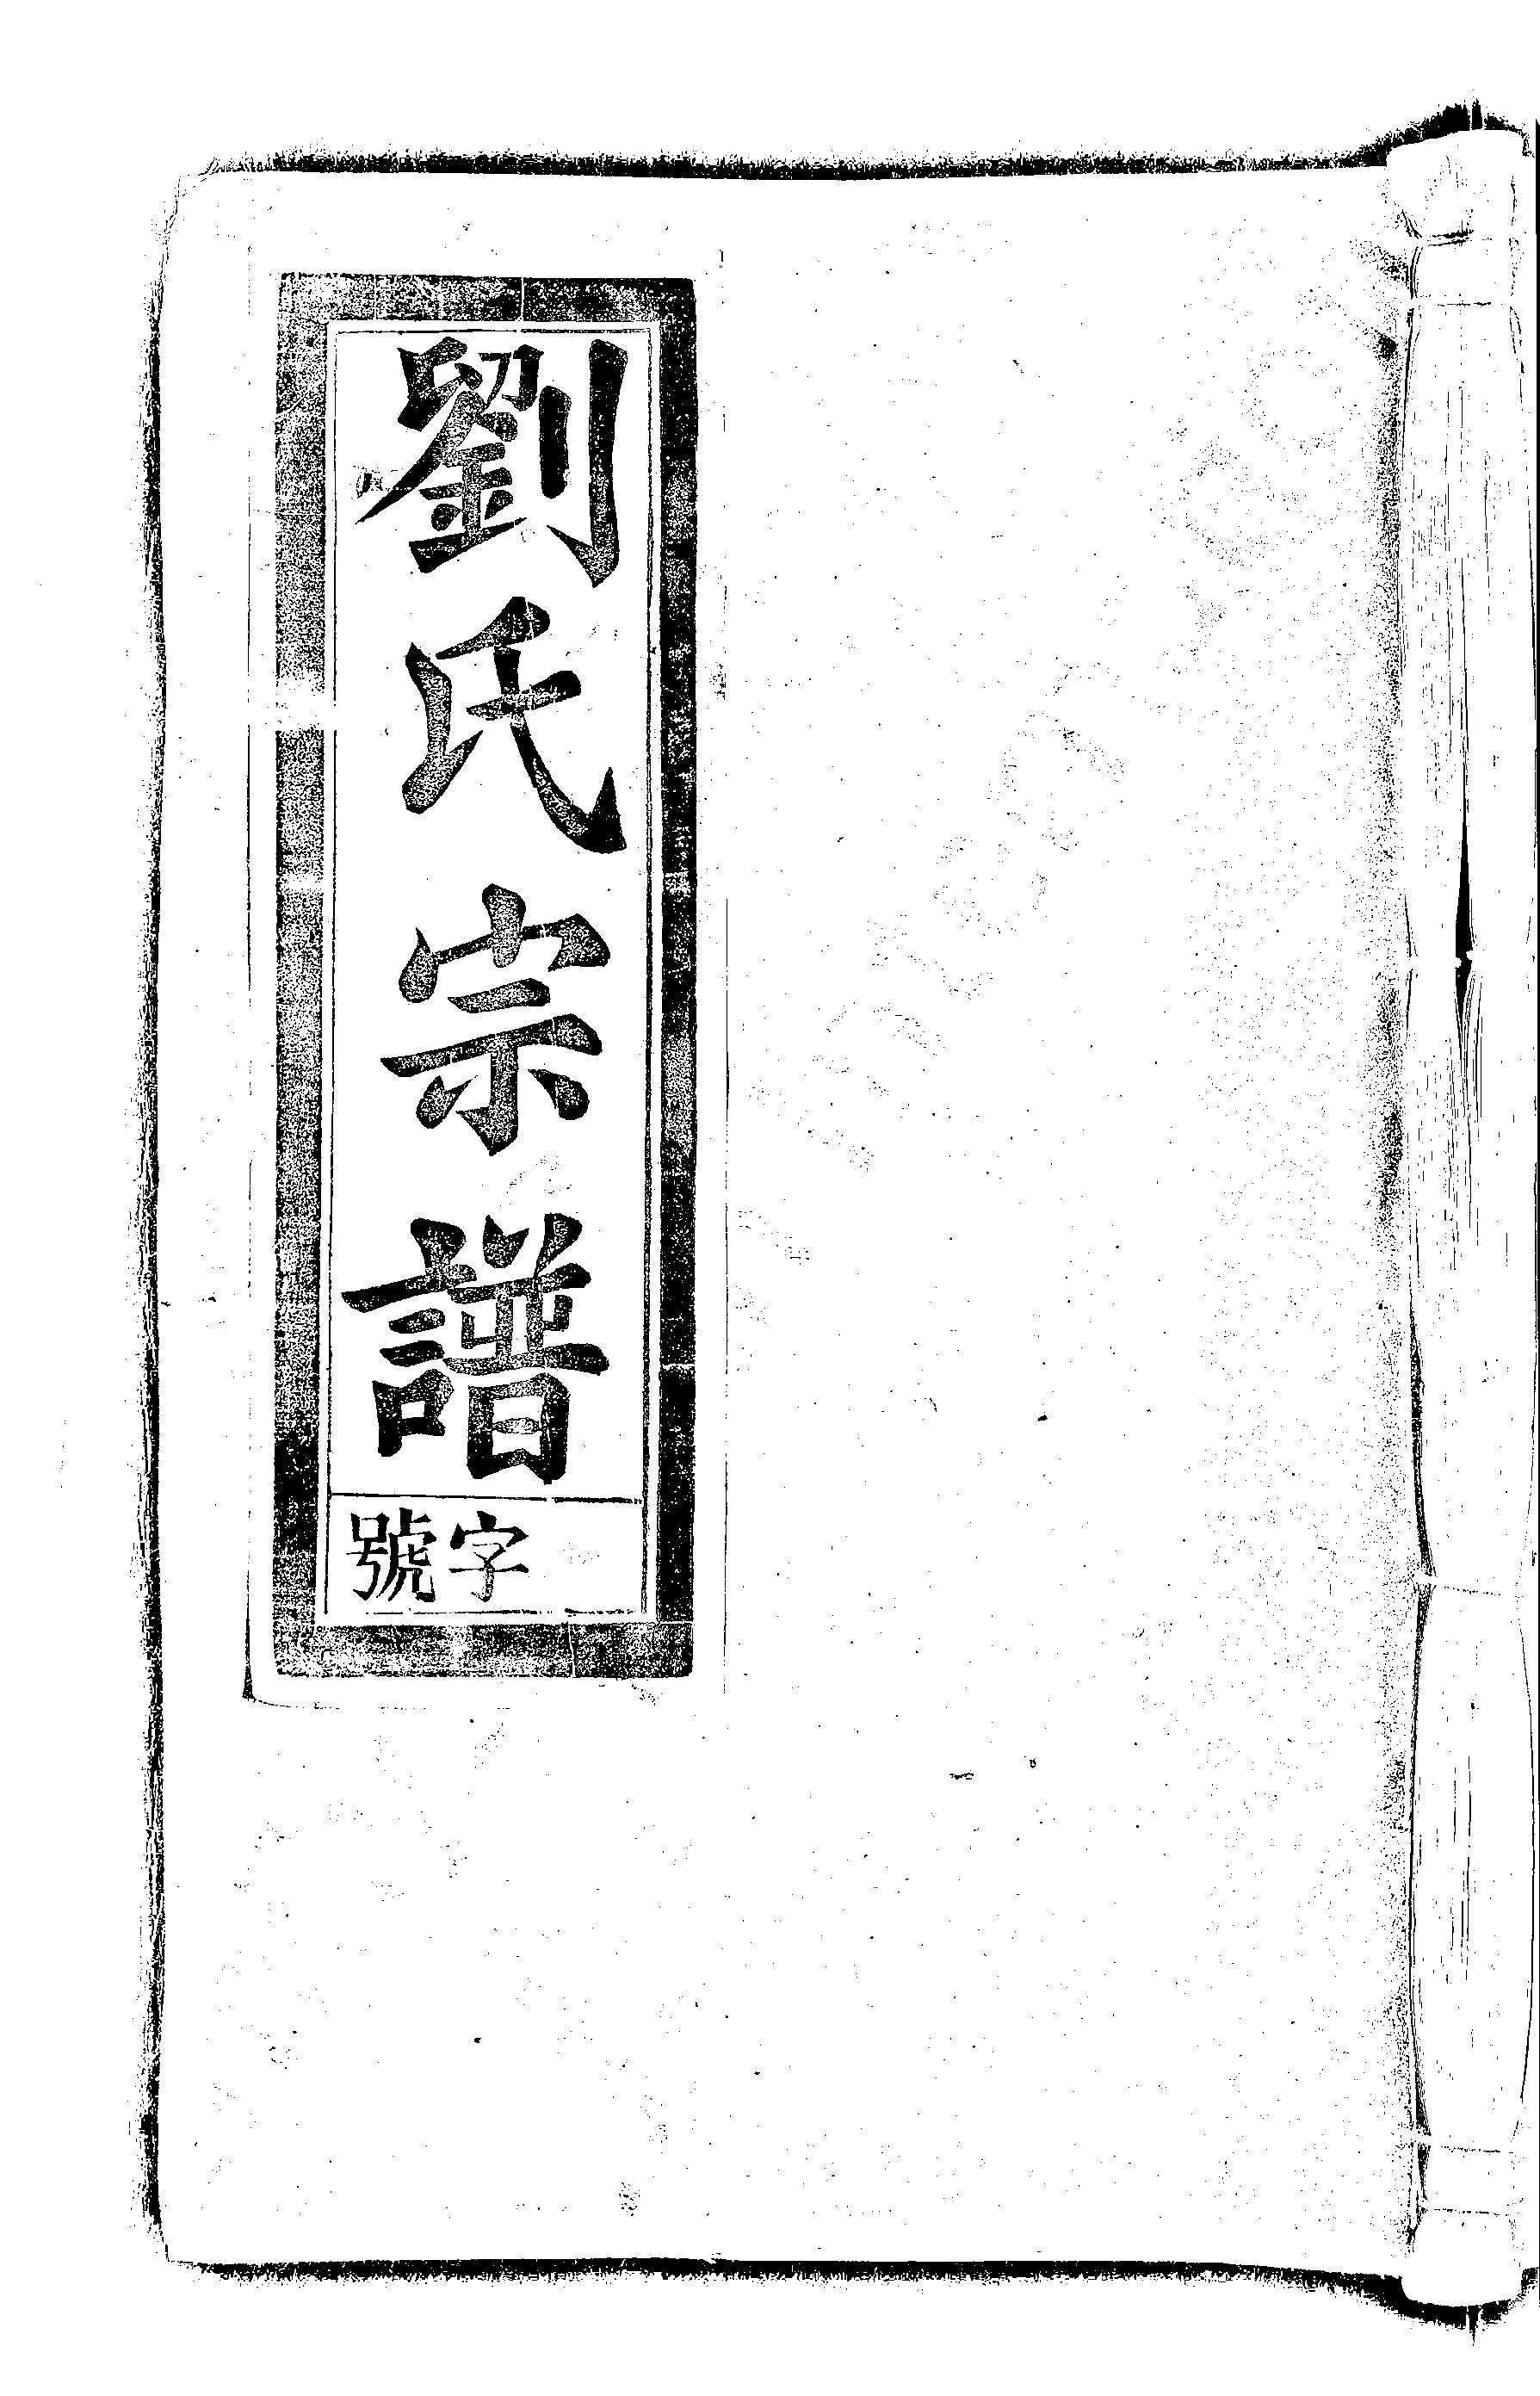 劉氏宗譜
字號